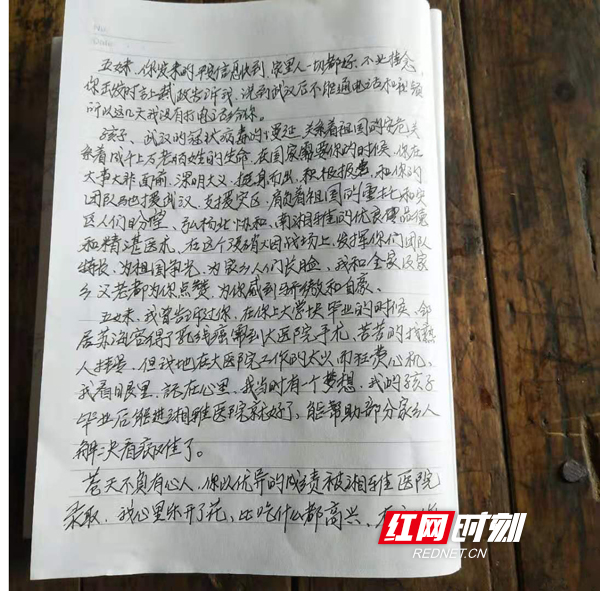 No.
Date
五妹、你发来的平安信息收到,家里人一切都好,不必挂念,
你出发时言上赋政告诉我,说到武汉后不能通电话和视频
所以这几天我没有打电话给你。
孩子、武汉的冠状病毒的蔓延,关系着祖国的安危关
系着成千上万老百姓的生命,在国家需要你的时候,你在
大事大非面前,深明大义,挺身而出,积极报悳,和你的
团队驰援武汉,支援灾区,肩负着祖国的重托和灾
区人们盼望,弘扬北协和、南湘雅的优良品德
和精湛医术,在这个没有大因战场上,发挥你们团队
特长,为祖国争光,为家乡人们长脸,我和全家及家
乡父老都为你点赞,为你感到骄傲和自豪。
五妹,我曾告诉过你,在你上大学快毕业的时候,邻
居苏海容得了乳线癌需到大医院手术,苦苦的找熟
人挂号,但说地在大医院工作的太少而枉费心机,
我看眼里,記在心里,我当时有一个梦想,我的孩子
毕业后能进湘雅医院就好了,能帮助部分家乡人
解决看病难了。
苍天不负有心人,你以优异的成绩被湘雅医院
录取,我心里乐开了花,比吃什么都高兴,
红网时刻
REDNET.CN